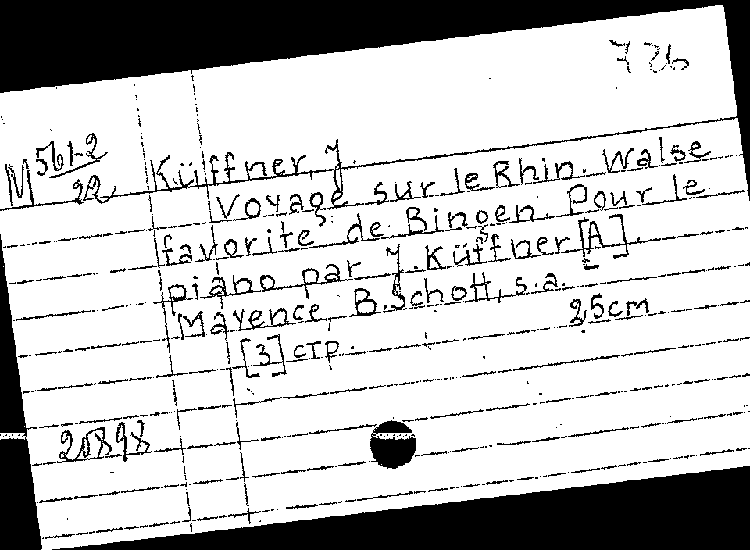 726
M 561-2/22
Küffner, J.
Voyage sur le Rhin. Walse
favorite de Bingen. Pour le
piano par J. Küffner [A].
Mayence, B. Schott, s.a.
[3] стр. 25cm.
20898